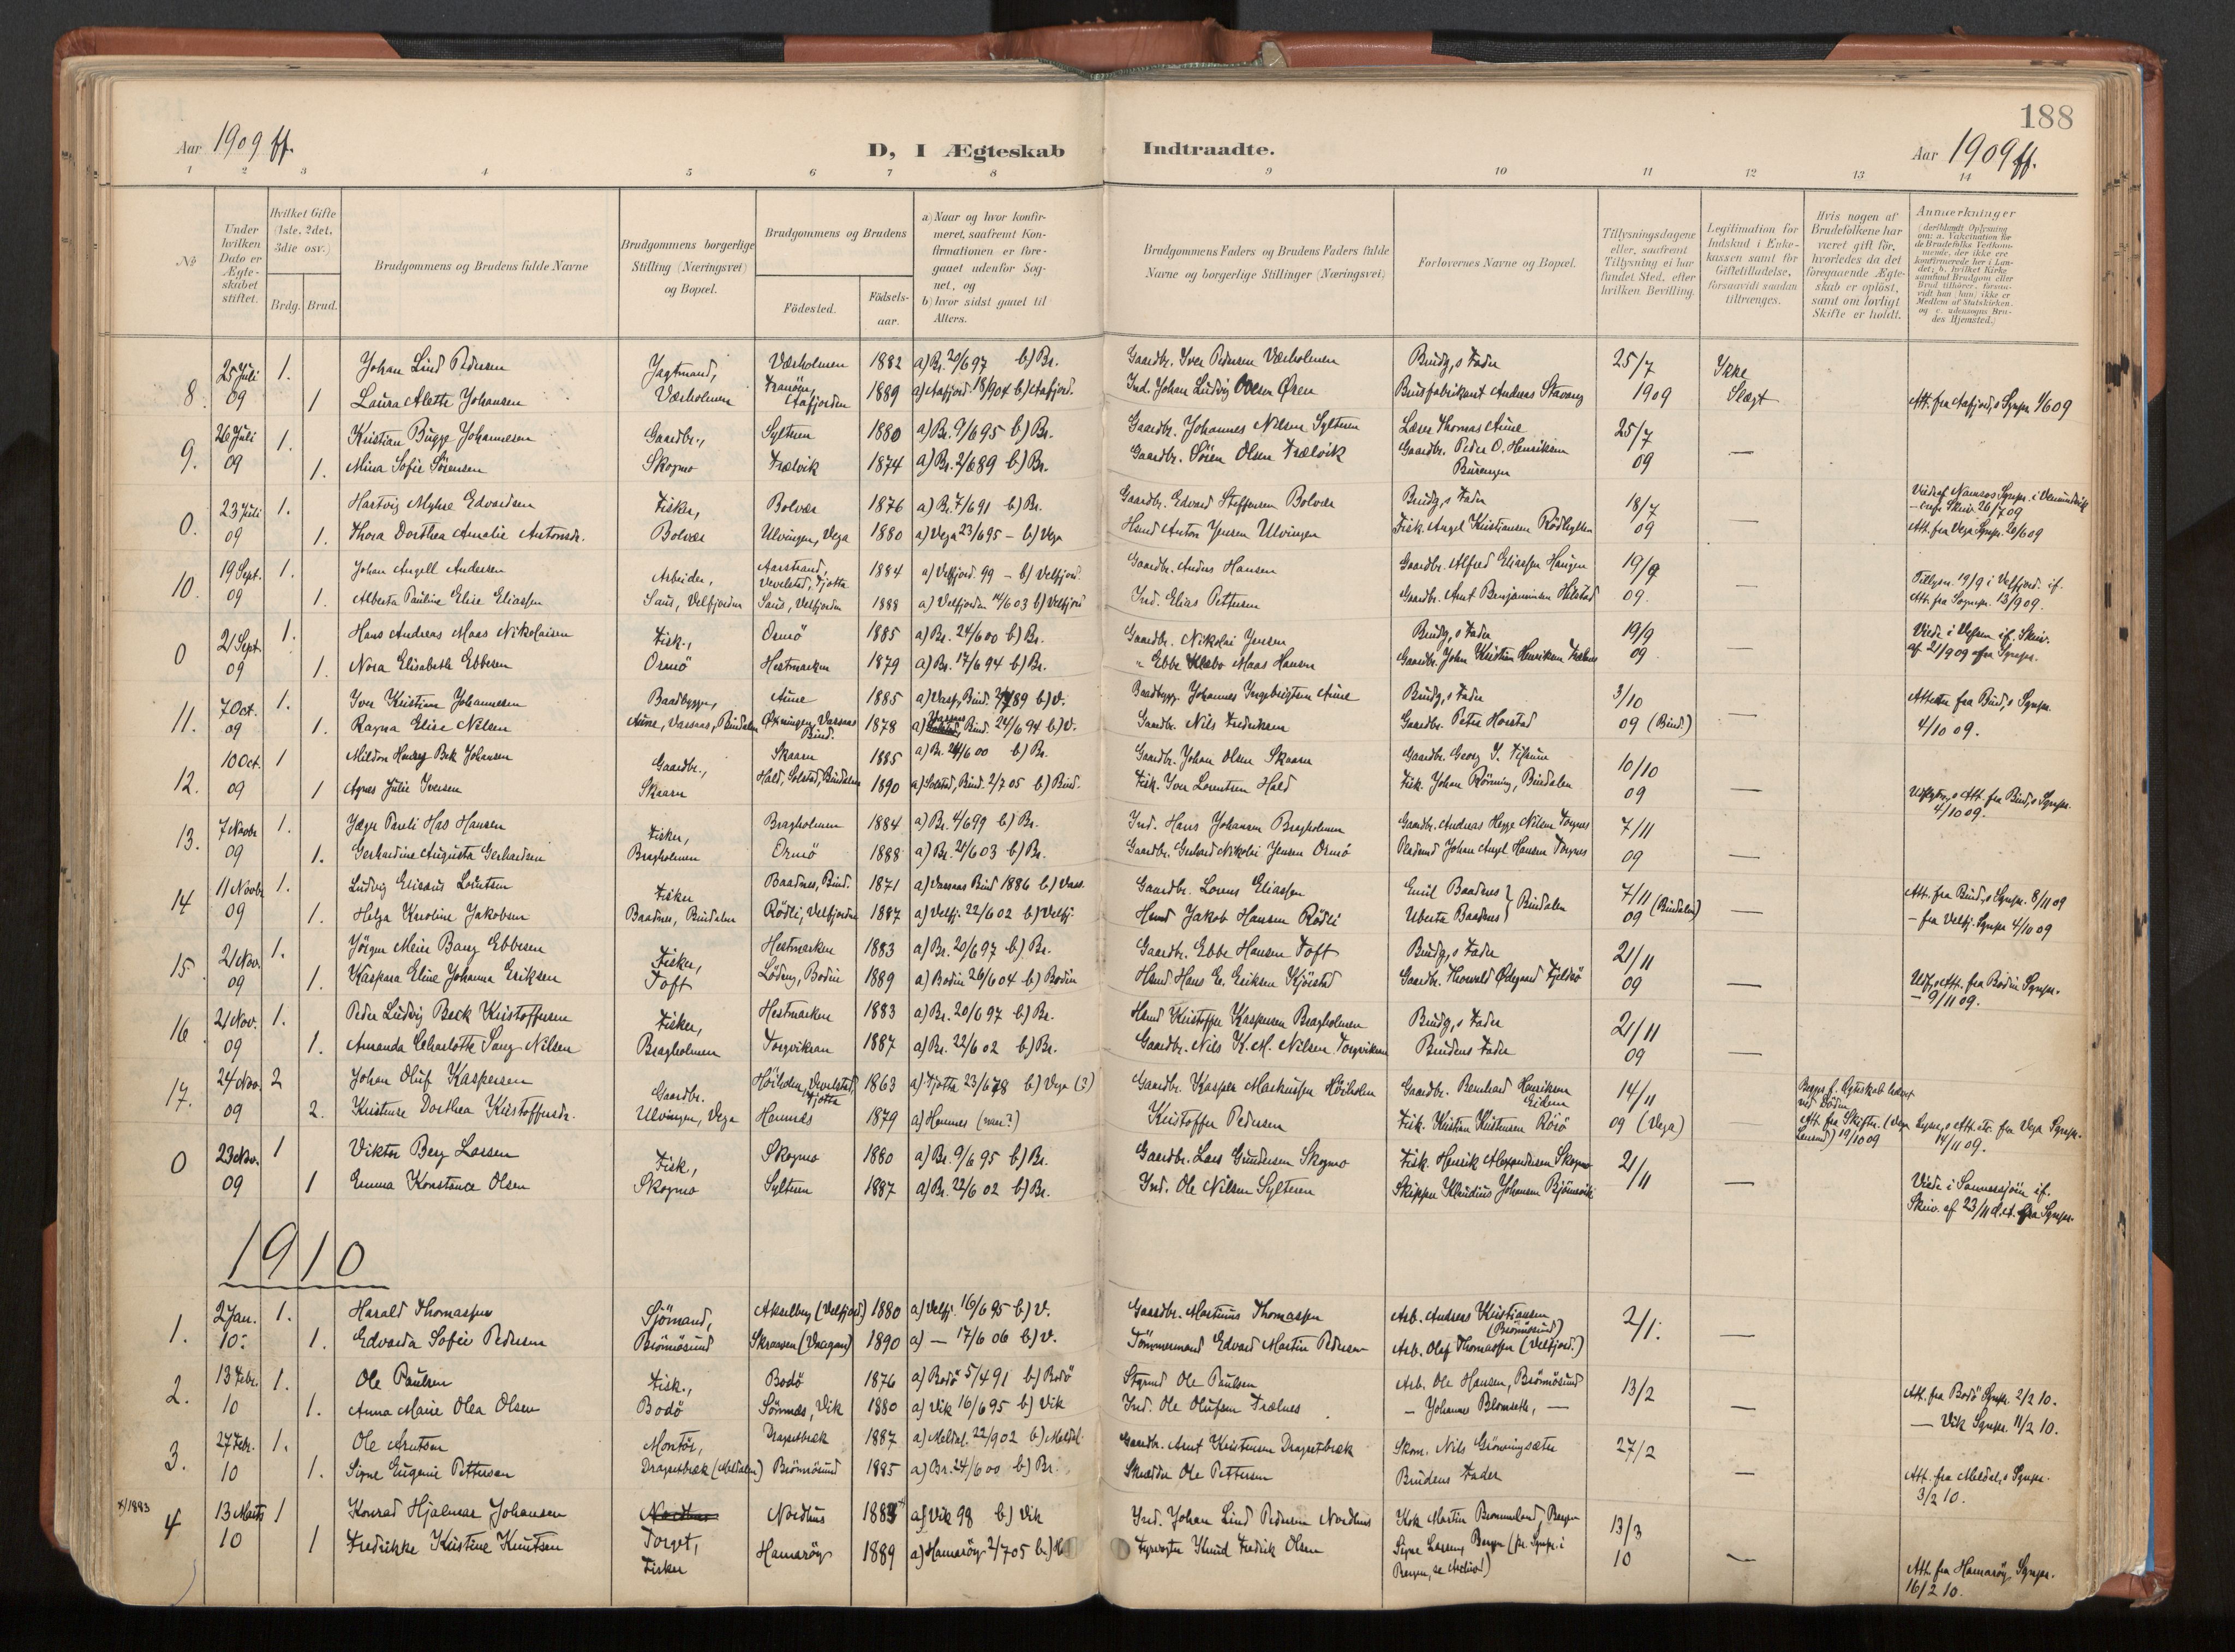 188
Aar 1909 ff.
D, I Ægteskab Indtraadte.
Aar 1909 ff.
1 2 3 4 5 6 7 8 9 10 11 12 13 14
No
Under hvilken Dato er Ægteskabet stiftet.
Hvilket Gifte (1ste, 2det, 3die osv.)
Brdg. Brud.
Brudgommens og Brudens fulde Navne
Brudgommens borgerlige Stilling (Næringsvei) og Bopæl.
Brudgommens og Brudens
Födested.
Födselsaar.
a) Naar og hvor konfirmeret, saafremt Konfirmationen er foregaaet udenfor Sognet, og
b) hvor sidst gaaet til Alters.
Brudgommens Faders og Brudens Faders fulde Navne og borgerlige Stillinger (Næringsvei)
Forlovernes Navne og Bopæl.
Tillysningsdagene eller, saafremt Tillysning ei har fundet Sted, efter hvilken Bevilling.
Legitimation for Indskud i Enkekassen samt for Giftetilladelse, forsaavidt saadan tiltrænges.
Hvis nogen af Brudefolkene har været gift för, hvorledes da det foregaaende Ægteskab er oplöst, samt om lovligt Skifte er holdt.
Anmerkninger (deriblandt Oplysning om: a. Vakcination for de Brudefolks Vedkommende, der ikke ere konfirmerede her i Landet; b. hvilket Kirkesamfund Brudgom eller Brud tilhörer, forsaavidt han (hun) ikke er Medlem af Statskirken, og c. udensogns Brudes Hjemsted.)
8. 25 Juli 1. Johan Lind Pedersen Jagtmand, Værholmen 1882 a) Br. 20/6 97 b) Br. Gaardbr. Iver Pedersen Værholmen Brudg,s Fader 25/7 Ikke
09 1 Laura Alette Johansen Værholmen Aafjorden 1889 a) Aafjord. 18/9 04 b) Aafjord. Ind. Johan Ludvig Øren Brusfabrikant Andreas Stavang 1909 Slægt Att. fra Aafjord,s Sgnpr. 1/6 09
9. 26 Juli 1. Kristian Bugge Johannesen Gaardbr., Sylteren 1880 a) Br. 9/6 95 b) Br. Gaardbr. Johannes Nilsen Sylteren Lærer Thomas Aune 25/7
09 1. Mina Sofie Sörensen Skogmo Trælvik 1874 a) Br. 2/6 89 b) Br. Gaardbr. Sören Olsen Trælvik Gaardbr. Peder O. Henriksen 09 —
0. 23 Juli 1. Hartvig Myhre Edvardsen Fisker, Bolvær 1876 a) Br. 7/6 91 b) Br. Gaardbr. Edvard Steffensen Bolvær Brudg,s Fader 18/7 Viede af Namsos Sgnpr. i
09 1. Thora Dorthea Amalie Antonsdr. Bolvær Ulvingen, Vega 1880 a) Vega 23/6 95 — b) Vega Hsmd Anton Jensen Ulvingen Fisk. Angel Kristiansen 09 — Skriv. 26/7 09
Att. fra Vega Sgnpr. 20/6 09
10. 19 Sept. 1. Johan Angell Andersen Arbeider, Aarstrand, Vevelstad, Tjotta 1884 a) Velfjord. 99 — b) Velfjord. Gaardbr. Anders Hansen Gaardbr. Alfred Eliassen Haugen 19/9 Tillysn. 19/9 i Velfjord. if.
09 1. Alberta Pauline Elise Eliassen Saus, Velfjorden Saus, Velfjorden 1888 a) Velfjorden 14/6 03 b) Velfjord Ind. Elias Pettersen Gaardbr. Arnt Benjaminsen Hilstad 09. — Att. fra Sognepr. 13/9 09.
0 21 Sept. 1. Hans Andreas Maas Nikolaisen Fisk., Ormö 1885 a) Br. 24/6 00 b) Br. Gaardbr. Nikolai Jensen Brudg,s Fader 19/9 Viede i Vefsen if. Skriv.
09 1. Nora Elisabeth Ebbesen Ormö Hestmarken 1879 a) Br. 17/6 94 b) Br. " Ebbe Maas Hansen Gaardbr. John Kristian Henriksen 09 — af 21/9 09 fra Sgnpr.
11. 7 Oct. 1. Iver Kristian Johannesen Baadbygger, Aune 1885 b) V. Baadbygg. Johannes Ingebrigtsen Aune Brudg,s Fader 3/10 Attester fra Bind,s Sgnpr.
09 1. Ragna Elise Nilsen Aune, Vassaas, Bindalen Vassaas Bind. 1878 a) Vassaas Bind. 24/6 94 b) V. Gaardbr. Nils Fredriksen Gaardbr. Peter Horstad 09 (Bind.) — 4/10 09.
12. 10 Oct. 1 Mildor Henrey Bek Johansen Gaardbr., Skaaren 1885 a) Br. 24/6 00 b) Br. Gaardbr. Johan Olsen Skaaren Gaardbr. Georg 10/10
09 1 Agnes Julie Iversen Skaaren Hald, Solstad, Bindalen 1890 a) Solstad, Bind. 2/7 05 b) Bind. Fisk. Iver Lorentsen Hald Fisk. Johan Rönning, Bindalen 09 Att. fra Bind,s Sgnpr. 4/10 09.
13. 7 Novbr 1. Jæger Pareli Has Hansen Fisker, Bragholmen 1884 a) Br. 4/6 99 b) Br. Ind. Hans Johansen Bragholmen Gaardbr. Andreas Hegge Nilsen Torgnes 7/11
09 1. Gerhardine Augusta Gerhardsen Bragholmen Ormö 1888 a) Br. 21/6 03 b) Br. Gaardbr. Gerhard Nikolai Jensen Ormö Johan Angel Hansen Torgnes 09 —
14 11 Novb. 1. Ludvig Elisæus Lorentsen Fisker Baadnes, Bind. 1871 a) Vassaas Bind 1886 b) Vass. Gaardbr. Lorens Eliassen Emil Baadnes 7/11 (Bindalen) Att. fra Bind,s Sgnpr. 8/11 09
09 1. Helga Karoline Jakobsen Baadnes, Bindalen Rödli, Velfjorden 1887 a) Velfj. 22/6 02 b) Velfj. Hsmd Jakob Hansen Rödli Uberta Baadnes } Bindalen 09 — — fra Velfj. Sgnpr. 4/10 09
15. 21 Nov. 1. Jörgen Meier Bang Ebbesen Fisker, Hestmarken 1883 a) Br. 20/6 97 b) Br. Gaardbr. Ebbe Hansen Toft Brudg,s Fader 21/11
09 1. Kaspara Eline Johanna Eriksen Toft Löding, Bodin 1889 a) Bodin 26/6 04 b) Bodin Hsmd Hans E. Eriksen Kjörstad Gaardbr. Thorvald Ødegaard Fjeldsö 09 — Att. fra Bodin Sgnpr. — 9/11 09.
16 21 Nov. 1. Peder Ludvig Beck Kristoffersen Fisker, Hestmarken 1883 a) Br. 20/6 97 b) Br. Hsmd Kristoffer Kaspersen Bragholmen Brudg,s Fader 21/11
09 1. Amanda Charlotte Sang Nilsen Bragholmen Torgvikran 1887 a) Br. 22/6 02 b) Br. Gaardbr. Nils K. M. Nilsen Torgvikran Brudens Fader 09 —
17. 24 Nov. 2 Johan Oluf Kaspersen Gaardbr. Höiholm, Vevelstad, Tjotta 1863 a) Tjotta 23/6 78 b) Vega (?) Gaardbr. Kasper Markussen Höiholm Gaardbr. Bernhard Henriksen Eidem 14/11 Begges f. Ægteskab ved Döden
09 2. Kristense Dorthea Kristoffersdr. Ulvingen, Vega Hemnæs 1879 a) Hemnes Kristoffer Pedersen Fisk. Kristian Kristensen Rörö 09 (Vega) — Att. fra Skiftr. (Vega Lensmd) 19/10 09 Att. etc. fra Vega Sgnpr. 14/11 09.
0 23 Nov. 1 Viktor Berg Larsen Fisk, Skogmo 1880 a) Br. 9/6 95 b) Br. Gaardbr. Lars Gundersen Skogmo Fisk. Henrik Alexandersen Skogmo 21/11
09 1 Emma Konstance Olsen Skogmo Sylteren 1887 a) Br. 22/6 02 b) Br. Ind. Ole Nilsen Sylteren Skipper Klaudius Johansen — Viede i Sannessjöen if.
Skriv. af 23/11 d.A. fra Sgnpr.
1910
1. 2 Jan. 1. Harald Thomassen Sjömand, Akselberg (Velfjord) 1880 a) Velfj. 16/6 95 b) V. Gaardbr. Martinus Thomassen Arb. Andreas Kristiansen (Brönnösund) 2/1.
10. 1. Edvarda Sofie Pedersen Brönnösund Skraaven (Vaagan) 1890 a) — 17/6 06 b) V. Tömmermand Edvard Martin Pedersen Arb. Olaf Thomassen (Velfjord.) —
2. 13 Febr. 1. Ole Paulsen Fisk., Bodö 1876 a) Bodö 5/4 91 b) Bodö Ole Paulsen Arb. Ole Hansen, Brönnösund 13/2 Att. fra Bodö Sgnpr. 2/2 10.
10 1. Anna Marie Olea Olsen Bodö Sömnæs, Vik 1880 a) Vik 16/6 95 b) Vik Ind. Ole Olufsen Trælnes — Johannes Blomseth, — — — Vik Sgnpr. 11/2 10.
3. 27 Febr. 1. Ole Arntsen Montör, Dragsetbæk 1887 a) Meldal. 22/9 02 b) Meldal Gaardbr. Arnt Kristensen Dragsetbæk Skom. Nils Grönningsæter 27/2
10 1. Signe Eugenie Pettersen Dragsetbæk (Meldalen) Brönnösund 1885 a) Br. 24/6 00 b) Br. Skrædder Ole Pettersen Brudens Fader — Att. fra Meldal,s Sgnpr. 3/2 10.
x) 1883
4 13 Marts 1 Konrad Hjalmar Johansen Nordhus Nordhus a) Vik 98 b) Vik Ind. Johan Lind Pedersen Nordhus Kok Martin Brommeland, Bergen 13/3
10 1 Fredrikke Kristine Knutsen Torget, Fisker Hamaröy 1889 a) Hamaröy 2/7 05 b) H Fyrvogter Knud Fredrik Olsen Signe Larsen, Bergen (fr. Sgnpr. i Bergen, se Archivet) 10 — Att. fra Hamaröy Sgnpr. 16/2 10.